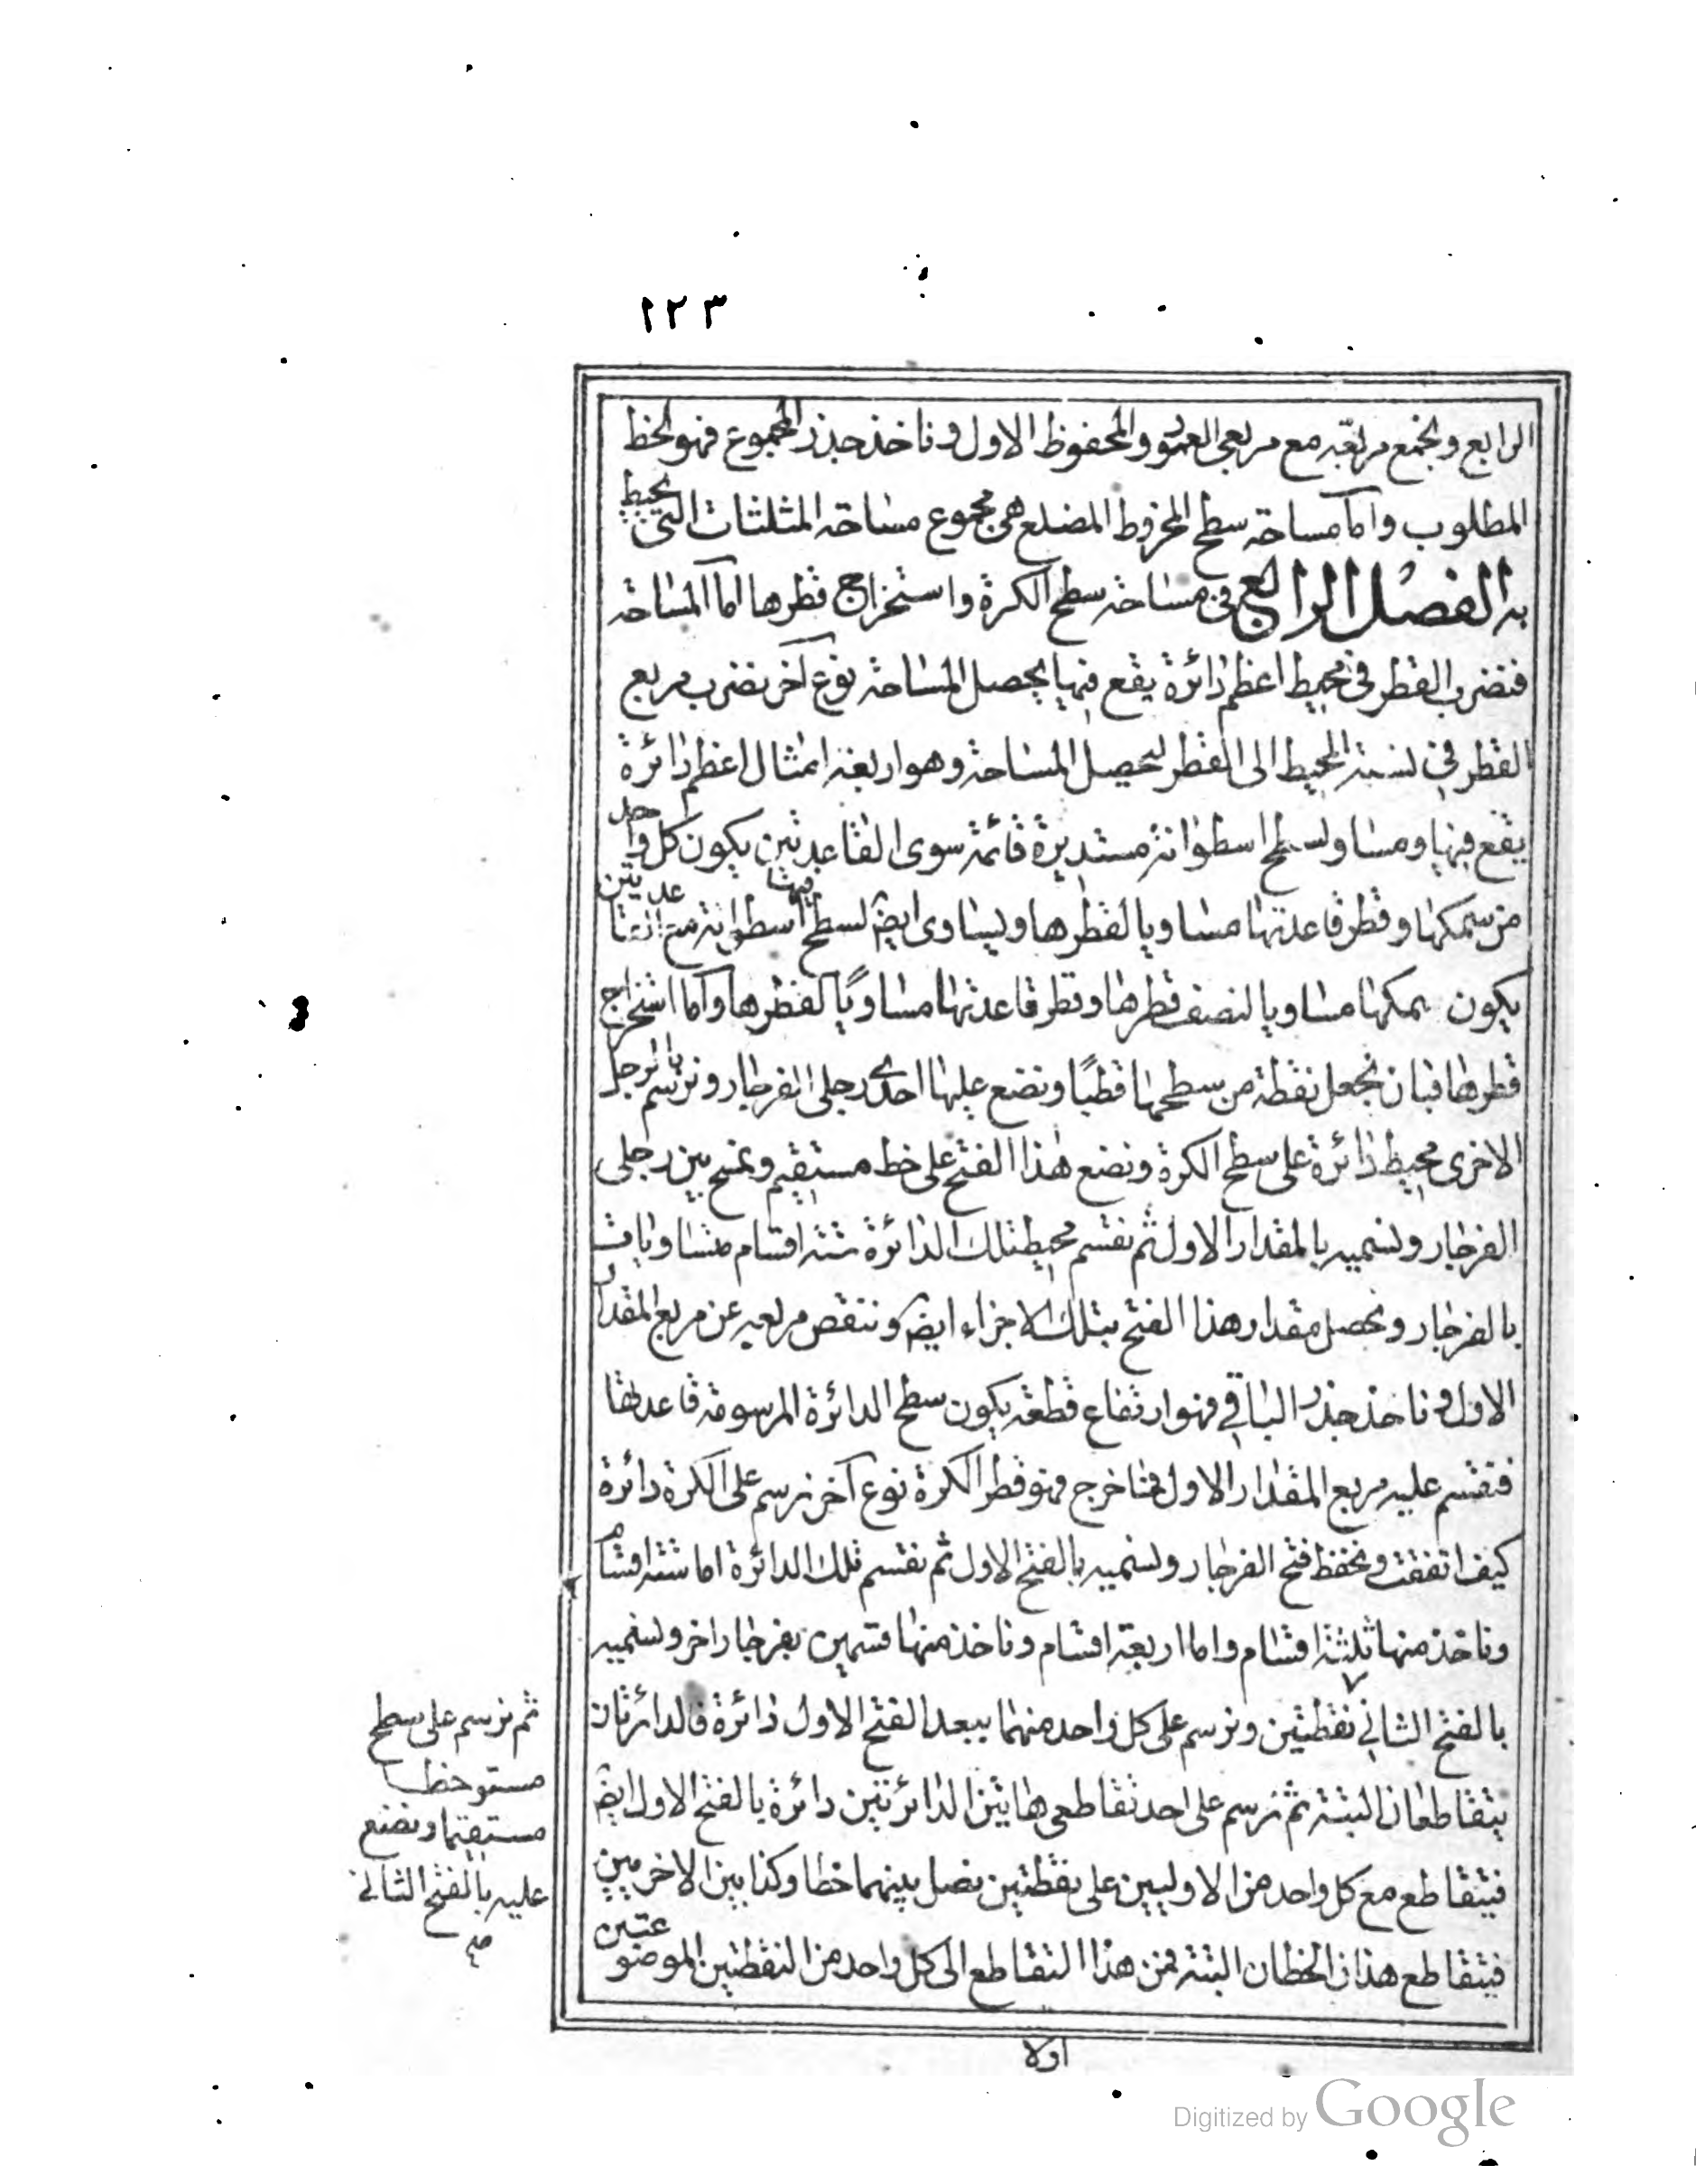 ١٢٣
الرابع ونجمع مربعه مع مربعي العمود والمحفوظ الاول وناخذ جذر المجموع فهو الخط
المطلوب واما مساحة سطح المخروط المضلع هي مجموع مساحة المثلثات التي يحيط
به الفصل الرابع في مساحة سطح الكرة واستخراج قطرها اما المساحة
فنضرب القطر في محيط اعظم دائرة يقع فيها يحصل المساحة نوع آخر نضرب مربع
القطر في نسبة المحيط الى القطر ليحصل المساحة وهو اربعة امثال اعظم دائرة
يقع فيها ومساو لسطح اسطوانة مستديرة قائمة سوى القاعدتين يكون كل واحد
من سمكها وقطر قاعدتها مساويا لقطرها ويساوى ايضا لسطح اسطوانة قائمة مع القاعدتين
يكون سمكها مساويا لنصف قطرها وقطر قاعدتها مساويًا لقطرها واما استخراج
قطرها فبان نجعل نقطة من سطحها قطبًا ونضع عليها احدى رجلي الفرجار ونرسم بالرجل
الاخرى محيط دائرة على سطح الكرة ونضع هذا الفتح على خط مستقيم ونمسح بين رجلي
الفرجار ونسميه بالمقدار الاول ثم نقسم محيط تلك الدائرة ستة اقسام متساويات
بالفرجار ونحصل مقدار هذا الفتح بتلك الاجزاء ايضا وننقص مربعه عن مربع المقدار
الاول وناخذ جذر الباقي فهو ارتفاع قطعة يكون سطح الدائرة المرسومة قاعدتها
فنقسم عليه مربع المقدار الاول فما خرج فهو قطر الكرة نوع آخر نرسم على الكرة دائرة
كيف اتفقت ونحفظ فتح الفرجار ونسميه بالفتح الاول ثم نقسم تلك الدائرة اما ستة اقسام
وناخذ منها ثلثة اقسام واما اربعة اقسام وناخذ منها قسمين بفرجار اخر ونسميه
بالفتح الثاني نقطتين ونرسم على كل واحد منهما ببعد الفتح الاول دائرة فالدائرتان
يتقاطعان البتة ثم نرسم على احد تقاطعي هاتين الدائرتين دائرة بالفتح الاول ايضا
فيتقاطع مع كل واحد من الاوليين على نقطتين نصل بينهما خطا وكذا بين الاخريين
فيتقاطع هذان الخطان البتة فمن هذا التقاطع الى كل واحد من النقطتين الموضوعتين
اولا
ثم نرسم على سطح
مستو خطا
مستقيما ونضع
عليه بالفتح الثاني
صح
Digitized by Google